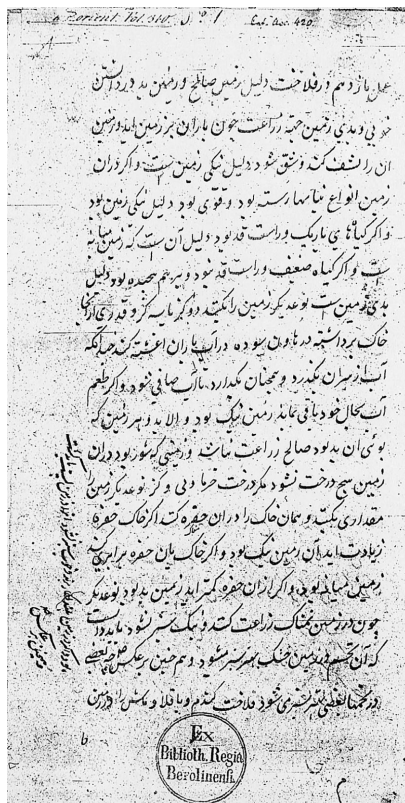 Ex Biblioth. Regia Berolinensi.
عمل یازدهم در فلاحت دلیل زمین صالح و زمین بد در دانستن
خوبی و بدی زمین جهة زراعت چون باران بر زمین اید و زمین
ان را نشف کند و شق شود دلیل نیکی زمین است و اکر در ان
زمین انواع رسته بود و قوی بود دلیل نیکی زمین بود
و اکر کیاهای باریک و راست قد بود دلیل آن است که زمین میانه
است و اکر کیاه ضعیف و راست قد نبود و بر هم پیچیده بود دلیل
بدی زمین است نوعدیکر زمین را بکنند دو کز یا سه کز و قدری از آنجا
خاک برداشته در هاون سوده در آب باران اغشته کنند چندانکه
آب از سر ان بگذرد و همچنان بگذارد تا آب صافی شود و اکر طعم
آب بحال خود باقی ماند زمین نیک بود و الا بد و هر زمین که
بوی ان بد بود صالح زراعت نباشد و زمینی که شور بود در ان
زمین هیچ درخت نشود مکر درخت خرما و نی و کز نوعدیکر زمین را
مقداری بکنند و همان خاک را در ان حفره کنند اکر خاک حفره
زیادت اید آن زمین نیک بود و اکر خاک بان حفره برابری کند
زمین میانه بود و اکر از ان حفره کمتر اید زمین بد بود نوعدیکر
چون در زمین نمناک زراعت کنند و نیک سبز شود باید دانست
که آن تخم در زمین خشک بهتر سبز میشود و هم چنین بر عکس
در تخمها بعضی سبز می شود فلاحت کندم و باقلا و ماش را در زمین